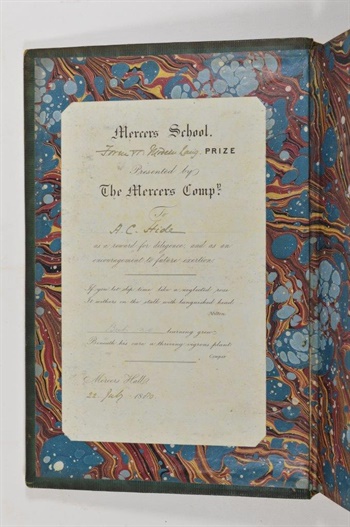 Mercers School.
Form Modern Lang. PRIZE
Presented by
The Mercers Compy.
To
A.C. Hide
as a reward for diligence, and as an
encouragement to future exertion
If you let slip time, like a neglected rose
It withers on the stalk with languished head.
Milton
learning grew
Beneath his care a thriving vigorous plant
Cowper
Mercers Hall
22 July